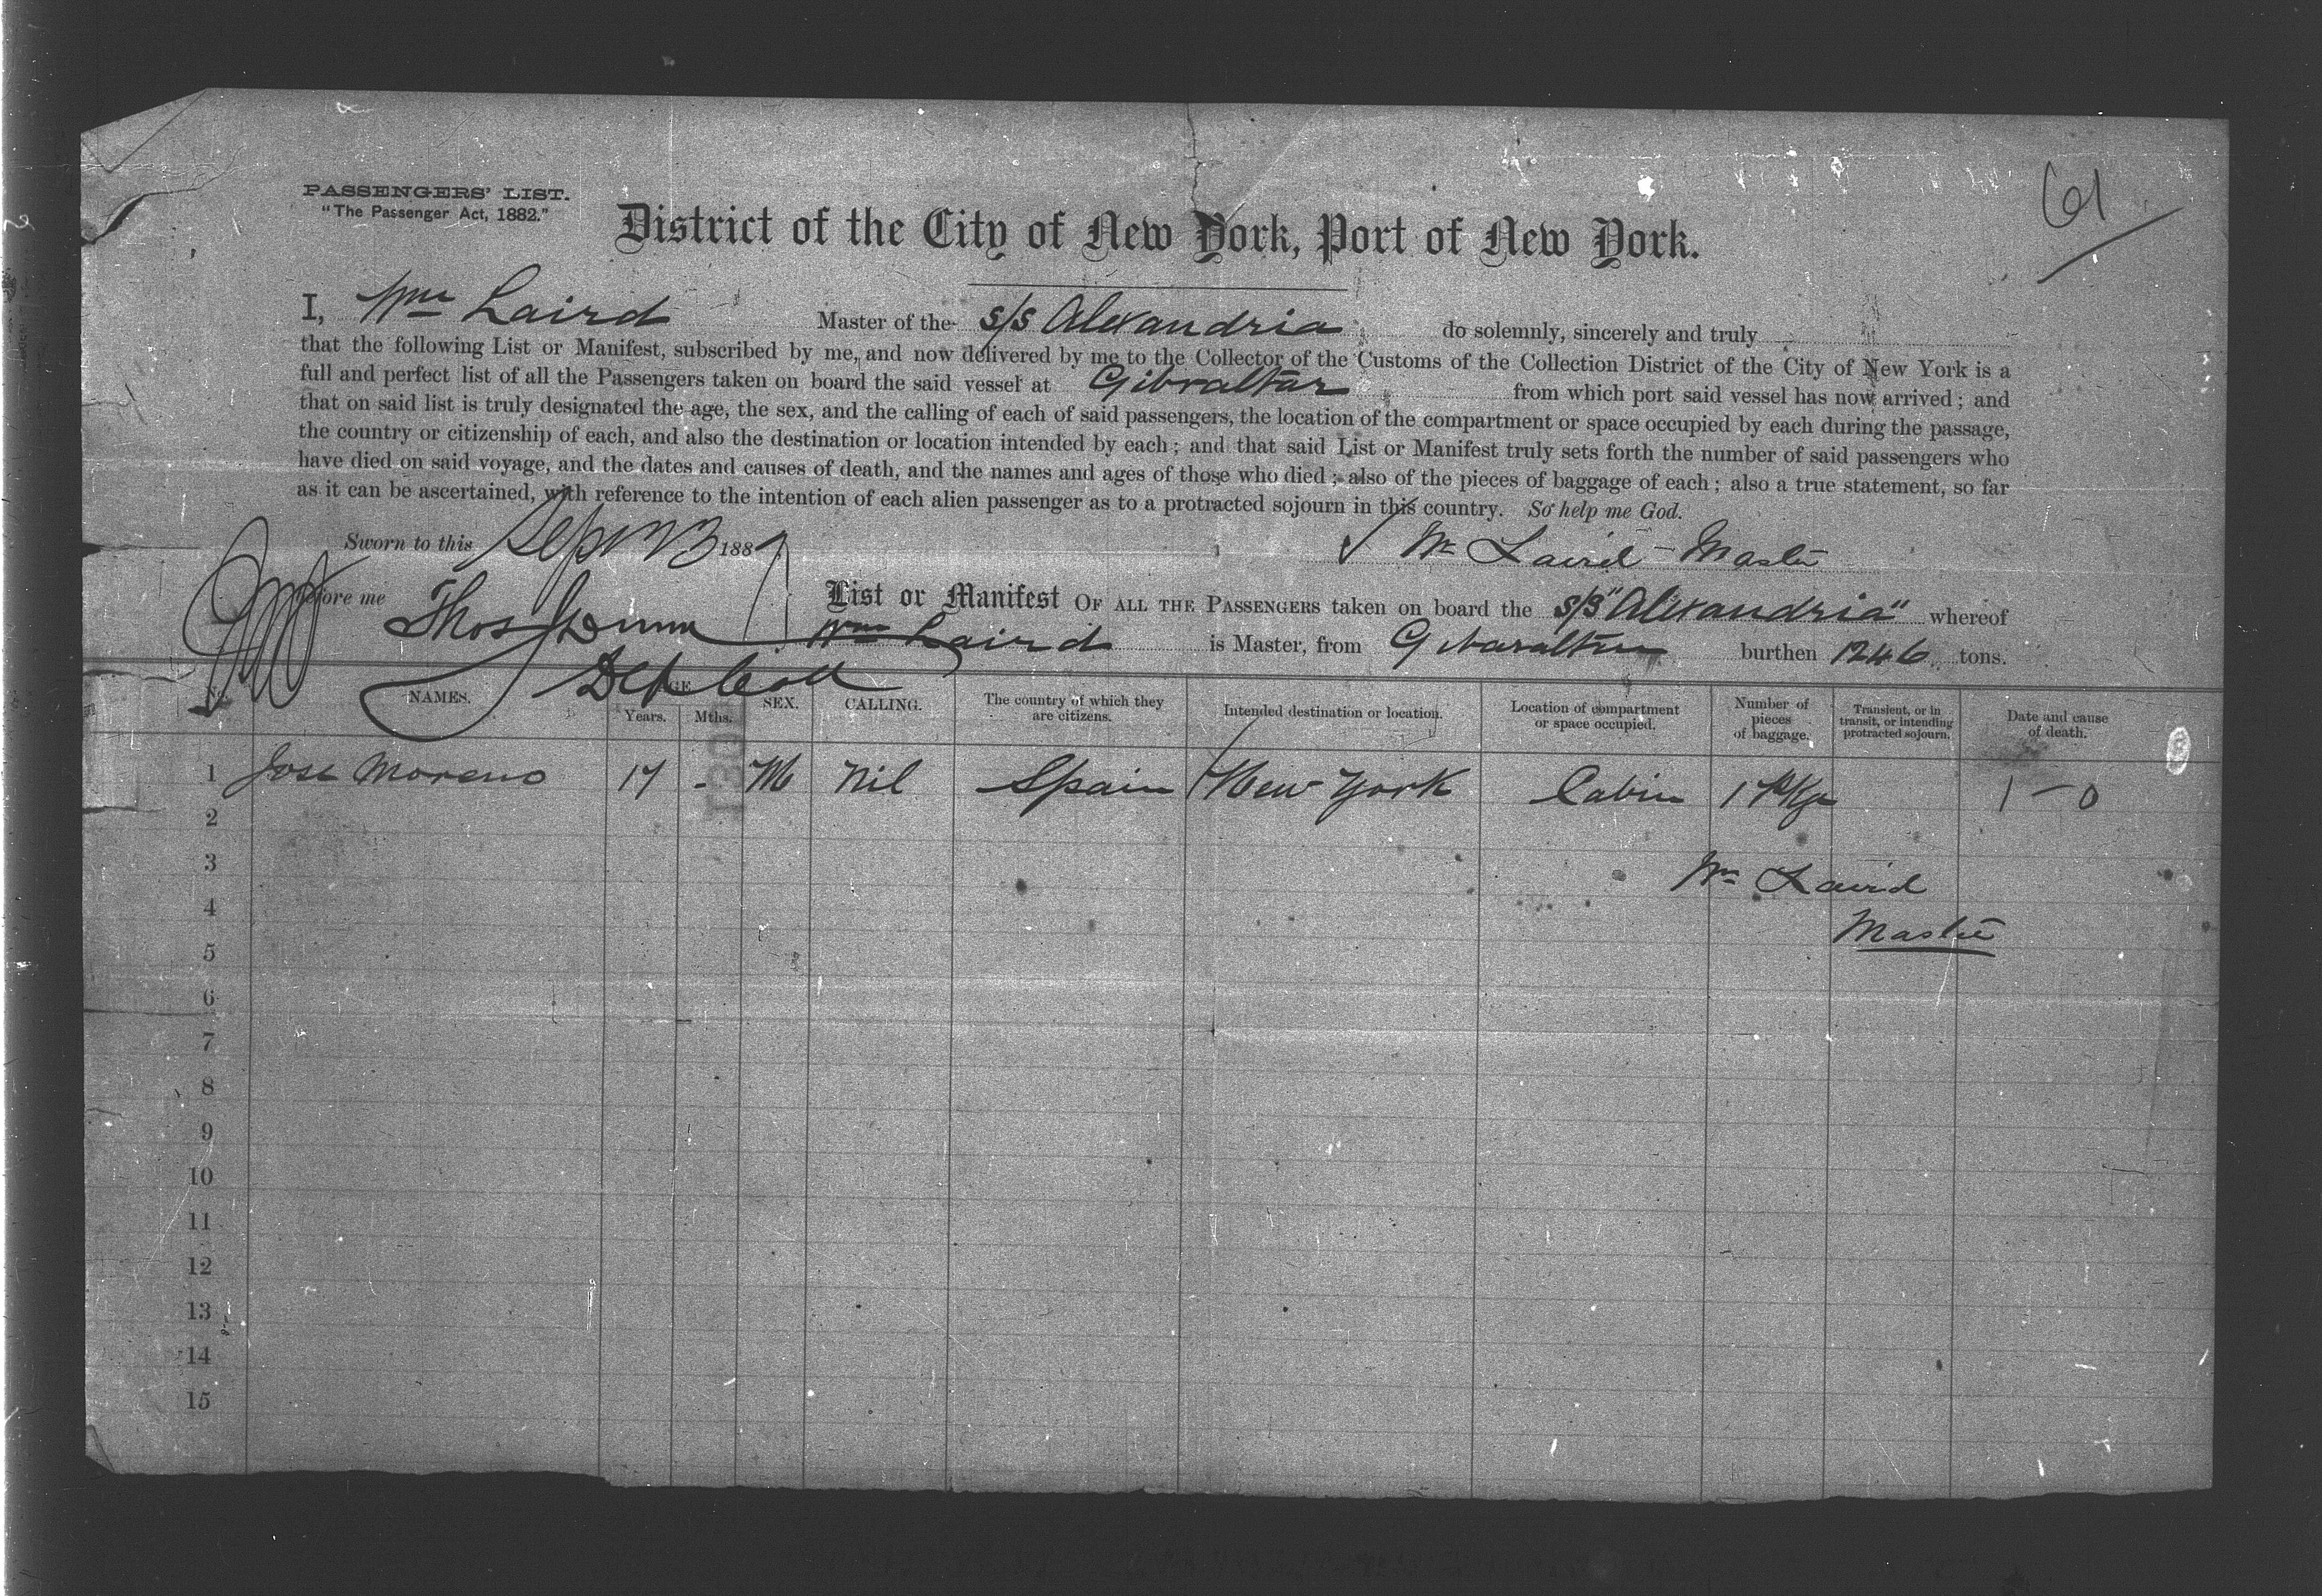 61
PASSENGERS' LIST.
"The Passenger Act, 1882."
District of the City of New York, Port of New York.
I, Wm Laird Master of the s/s Alexandria do solemnly, sincerely and truly
that the following List or Manifest, subscribed by me, and now delivered by me to the Collector of the Customs of the Collection District of the City of New York is a
full and perfect list of all the Passengers taken on board the said vessel at Gibraltar from which port said vessel has now arrived; and
that on said list is truly designated the age, the sex, and the calling of each of said passengers, the location of the compartment or space occupied by each during the passage,
the country or citizenship of each, and also the destination or location intended by each; and that said List or Manifest truly sets forth the number of said passengers who
have died on said voyage, and the dates and causes of death, and the names and ages of those who died; also of the pieces of baggage of each; also a true statement, so far
as it can be ascertained, with reference to the intention of each alien passenger as to a protracted sojourn in this country. So help me God.
Sworn to this Sept 188 Wm Laird - Master
before me Thos Dunn List or Manifest OF ALL THE PASSENGERS taken on board the s/s "Alexandria" whereof
Wm Laird is Master, from Gibraltar burthen 1246 tons.
Dep Coll
No. NAMES. AGE Years. Mths. SEX. CALLING. The country of which they are citizens. Intended destination or location. Location of compartment or space occupied. Number of pieces of baggage. Transient, or in transit, or intending protracted sojourn. Date and cause of death.
1 Jose Moreno 17 - M Nil Spain New York Cabin 1 Pkge 1 - 0
2
3 Wm Laird
4 Master
5
6
7
8
9
10
11
12
13
14
15